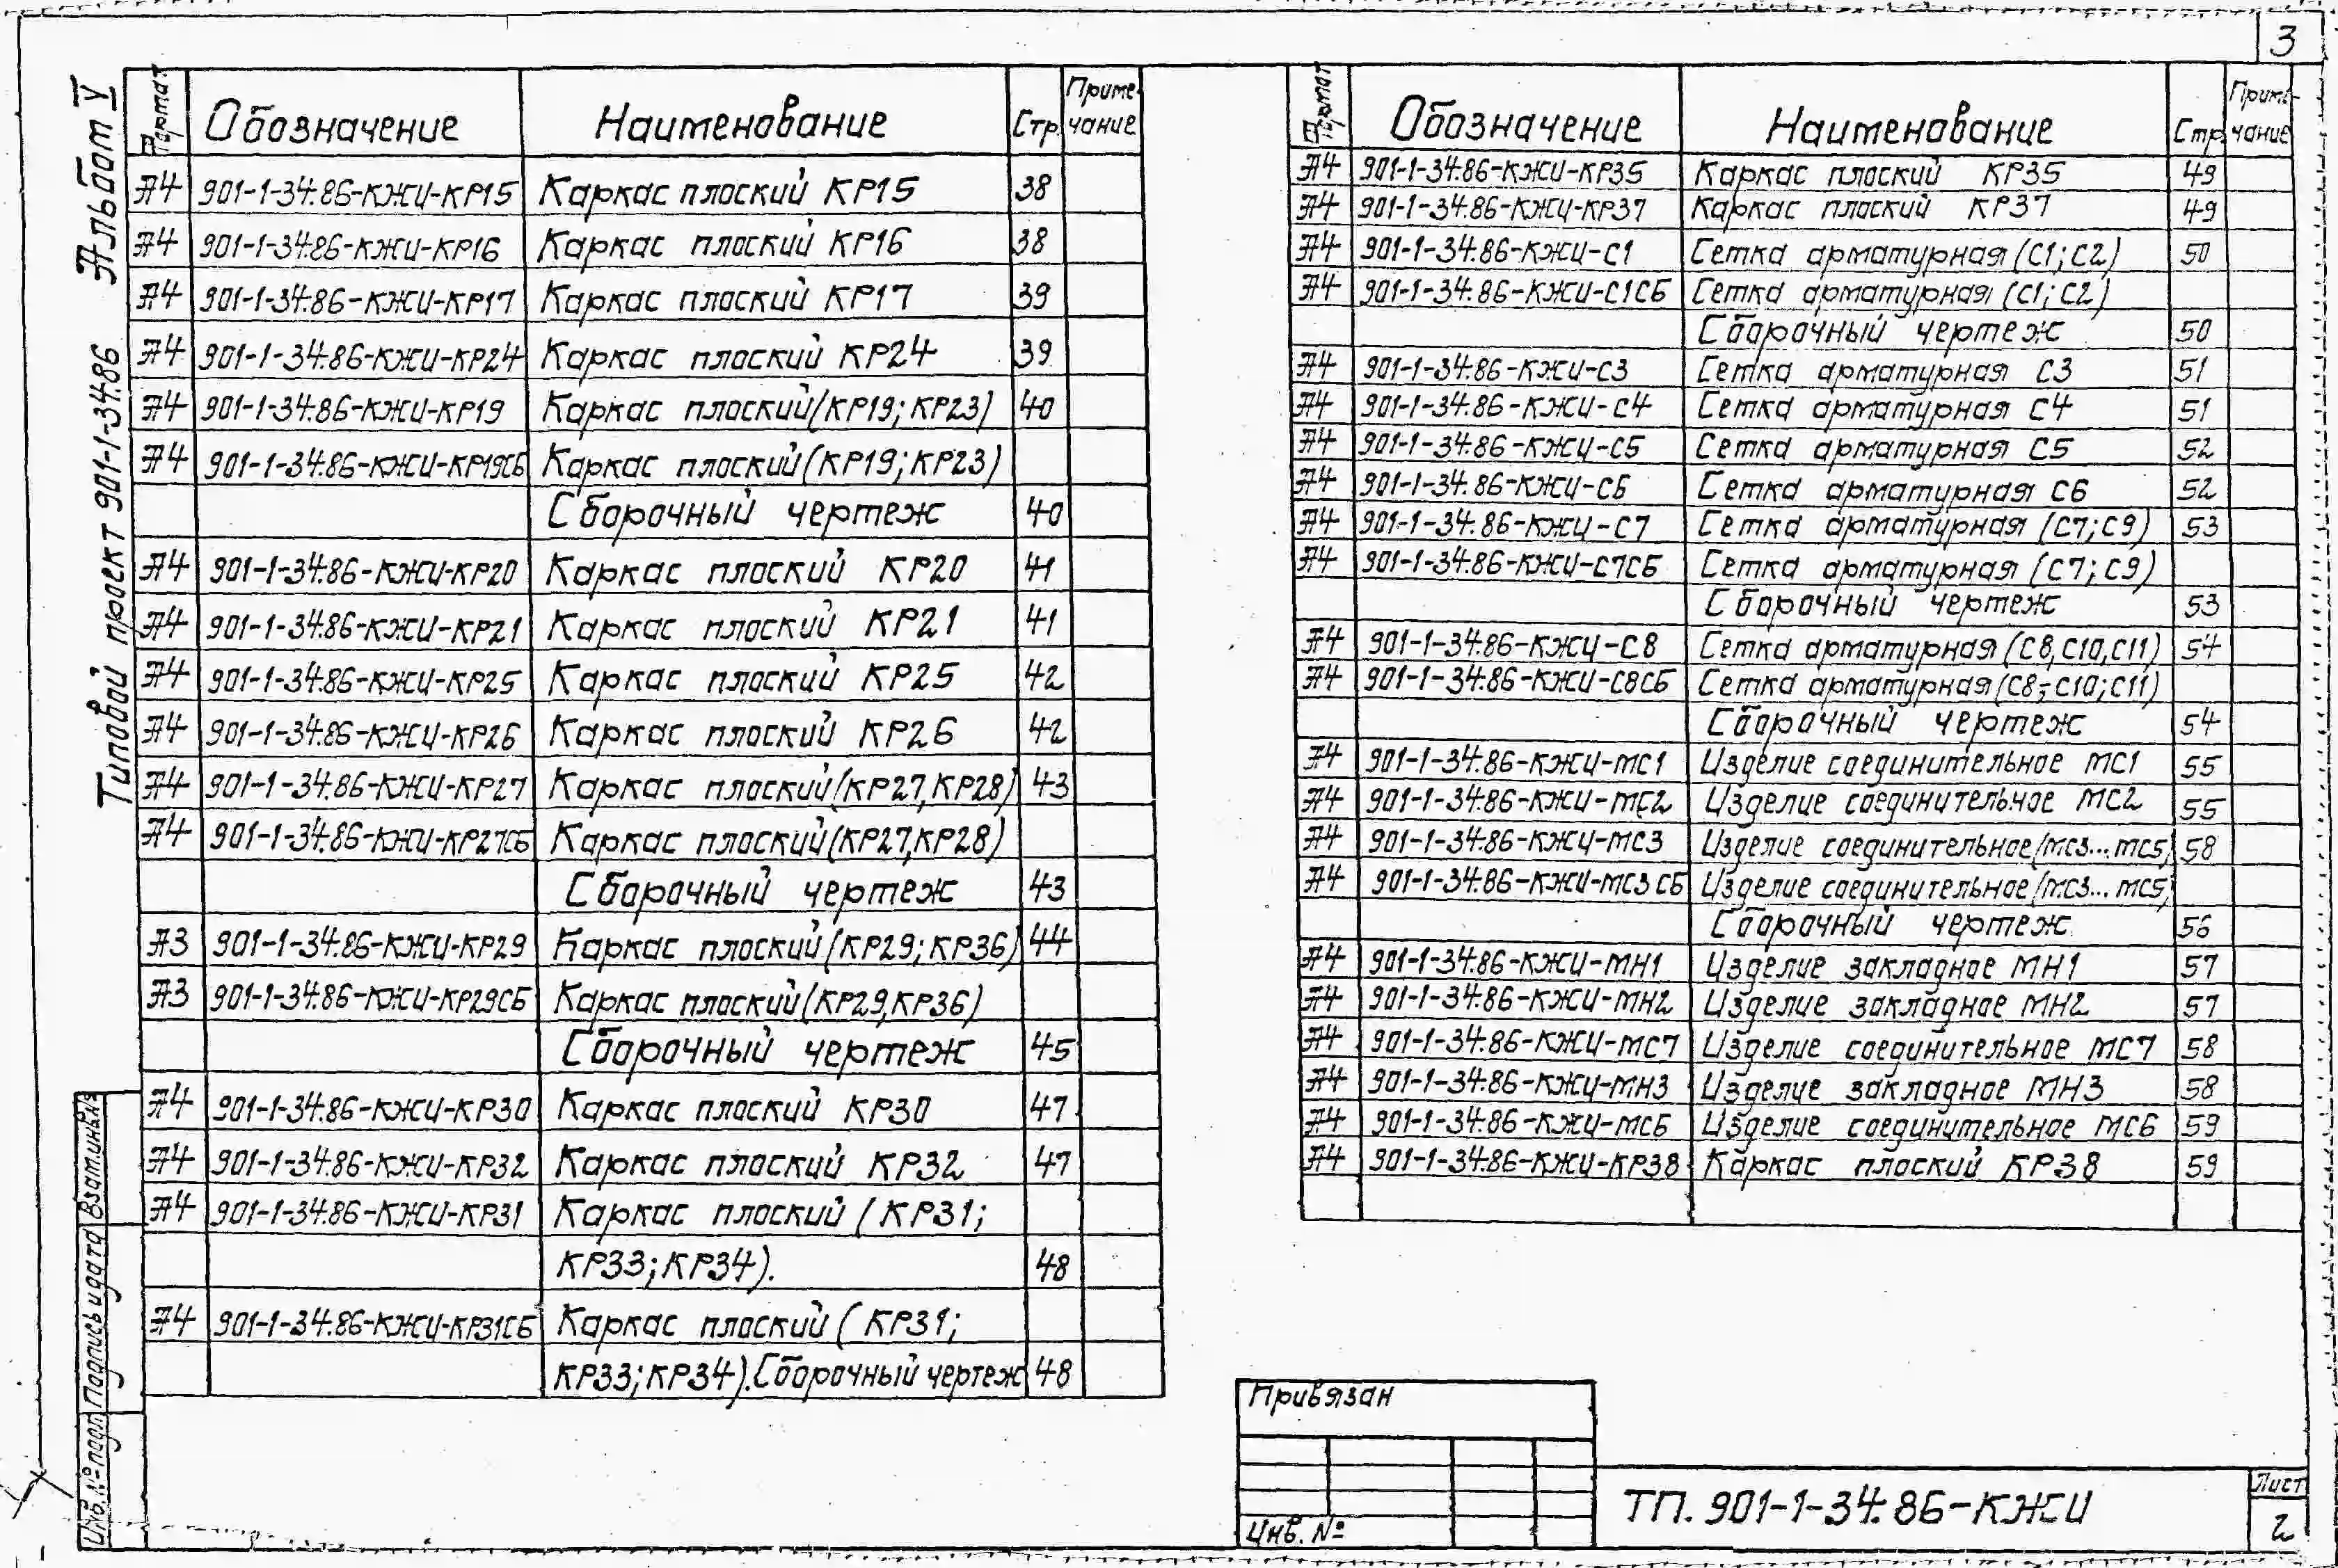 3
Типовой проект 901-1-34.86 Альбом V
Формат Обозначение Наименование Стр. Примечание
А4 901-1-34.86-КЖИ-КР15 Каркас плоский КР15 38
А4 901-1-34.86-КЖИ-КР16 Каркас плоский КР16 38
А4 901-1-34.86-КЖИ-КР17 Каркас плоский КР17 39
А4 901-1-34.86-КЖИ-КР24 Каркас плоский КР24 39
А4 901-1-34.86-КЖИ-КР19 Каркас плоский(КР19; КР23) 40
А4 901-1-34.86-КЖИ-КР19СБ Каркас плоский(КР19; КР23)
Сборочный чертеж 40
А4 901-1-34.86-КЖИ-КР20 Каркас плоский КР20 41
А4 901-1-34.86-КЖИ-КР21 Каркас плоский КР21 41
А4 901-1-34.86-КЖИ-КР25 Каркас плоский КР25 42
А4 901-1-34.86-КЖИ-КР26 Каркас плоский КР26 42
А4 901-1-34.86-КЖИ-КР27 Каркас плоский(КР27,КР28) 43
А4 901-1-34.86-КЖИ-КР27СБ Каркас плоский(КР27,КР28)
Сборочный чертеж 43
А3 901-1-34.86-КЖИ-КР29 Каркас плоский(КР29; КР36) 44
А3 901-1-34.86-КЖИ-КР29СБ Каркас плоский(КР29,КР36)
Сборочный чертеж 45
А4 901-1-34.86-КЖИ-КР30 Каркас плоский КР30 47
А4 901-1-34.86-КЖИ-КР32 Каркас плоский КР32 47
А4 901-1-34.86-КЖИ-КР31 Каркас плоский (КР31;
КР33; КР34). 48
А4 901-1-34.86-КЖИ-КР31СБ Каркас плоский (КР31;
КР33; КР34). Сборочный чертеж 48
Формат Обозначение Наименование Стр. Примечание
А4 901-1-34.86-КЖИ-КР35 Каркас плоский КР35 49
А4 901-1-34.86-КЖИ-КР37 Каркас плоский КР37 49
А4 901-1-34.86-КЖИ-С1 Сетка арматурная (С1; С2) 50
А4 901-1-34.86-КЖИ-С1СБ Сетка арматурная (С1; С2)
Сборочный чертеж 50
А4 901-1-34.86-КЖИ-С3 Сетка арматурная С3 51
А4 901-1-34.86-КЖИ-С4 Сетка арматурная С4 51
А4 901-1-34.86-КЖИ-С5 Сетка арматурная С5 52
А4 901-1-34.86-КЖИ-С6 Сетка арматурная С6 52
А4 901-1-34.86-КЖИ-С7 Сетка арматурная (С7; С9) 53
А4 901-1-34.86-КЖИ-С7СБ Сетка арматурная (С7; С9)
Сборочный чертеж 53
А4 901-1-34.86-КЖИ-С8 Сетка арматурная (С8, С10, С11) 54
А4 901-1-34.86-КЖИ-С8СБ Сетка арматурная (С8; С10; С11)
Сборочный чертеж 54
А4 901-1-34.86-КЖИ-МС1 Изделие соединительное МС1 55
А4 901-1-34.86-КЖИ-МС2 Изделие соединительное МС2 55
А4 901-1-34.86-КЖИ-МС3 Изделие соединительное(МС3...МС5) 58
А4 901-1-34.86-КЖИ-МС3СБ Изделие соединительное(МС3...МС5)
Сборочный чертеж 56
А4 901-1-34.86-КЖИ-МН1 Изделие закладное МН1 57
А4 901-1-34.86-КЖИ-МН2 Изделие закладное МН2 57
А4 901-1-34.86-КЖИ-МС7 Изделие соединительное МС7 58
А4 901-1-34.86-КЖИ-МН3 Изделие закладное МН3 58
А4 901-1-34.86-КЖИ-МС6 Изделие соединительное МС6 59
А4 901-1-34.86-КЖИ-КР38 Каркас плоский КР38 59
Взам.инв.№
Подпись и дата
Инв.№подл
Привязан
Инв. №
ТП. 901-1-34.86-КЖИ
Лист
2